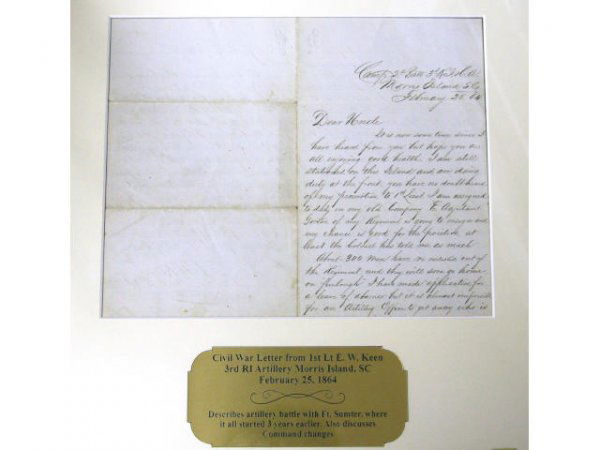 Camp 2d Batt 3d R.I. H.A.
Morris Island S.C.
February 25 64
Dear Uncle
It is now some time since I
have heard from you but hope you are
all enjoying good health. I am still
stationed on this Island and am doing
duty at the front, you have no doubt heard
of my promotion to 1st Lieut I am assigned
to duty in my old Company E. Adjutant
of my Regiment is going to resign and
my chance is good for the position at
least the Colonel has told me as much
About 300 men have re
the Regiment and they will soon go home
on furlough I have made application for
a leave of absence but it is almost impossible
for an Artillery Officer to get away who is
Civil War Letter from 1st Lt E. W. Keen
3rd RI Artillery Morris Island, SC
February 25, 1864
Describes artillery battle with Ft. Sumter, where
it all started 3 years earlier. Also discusses
Command changes